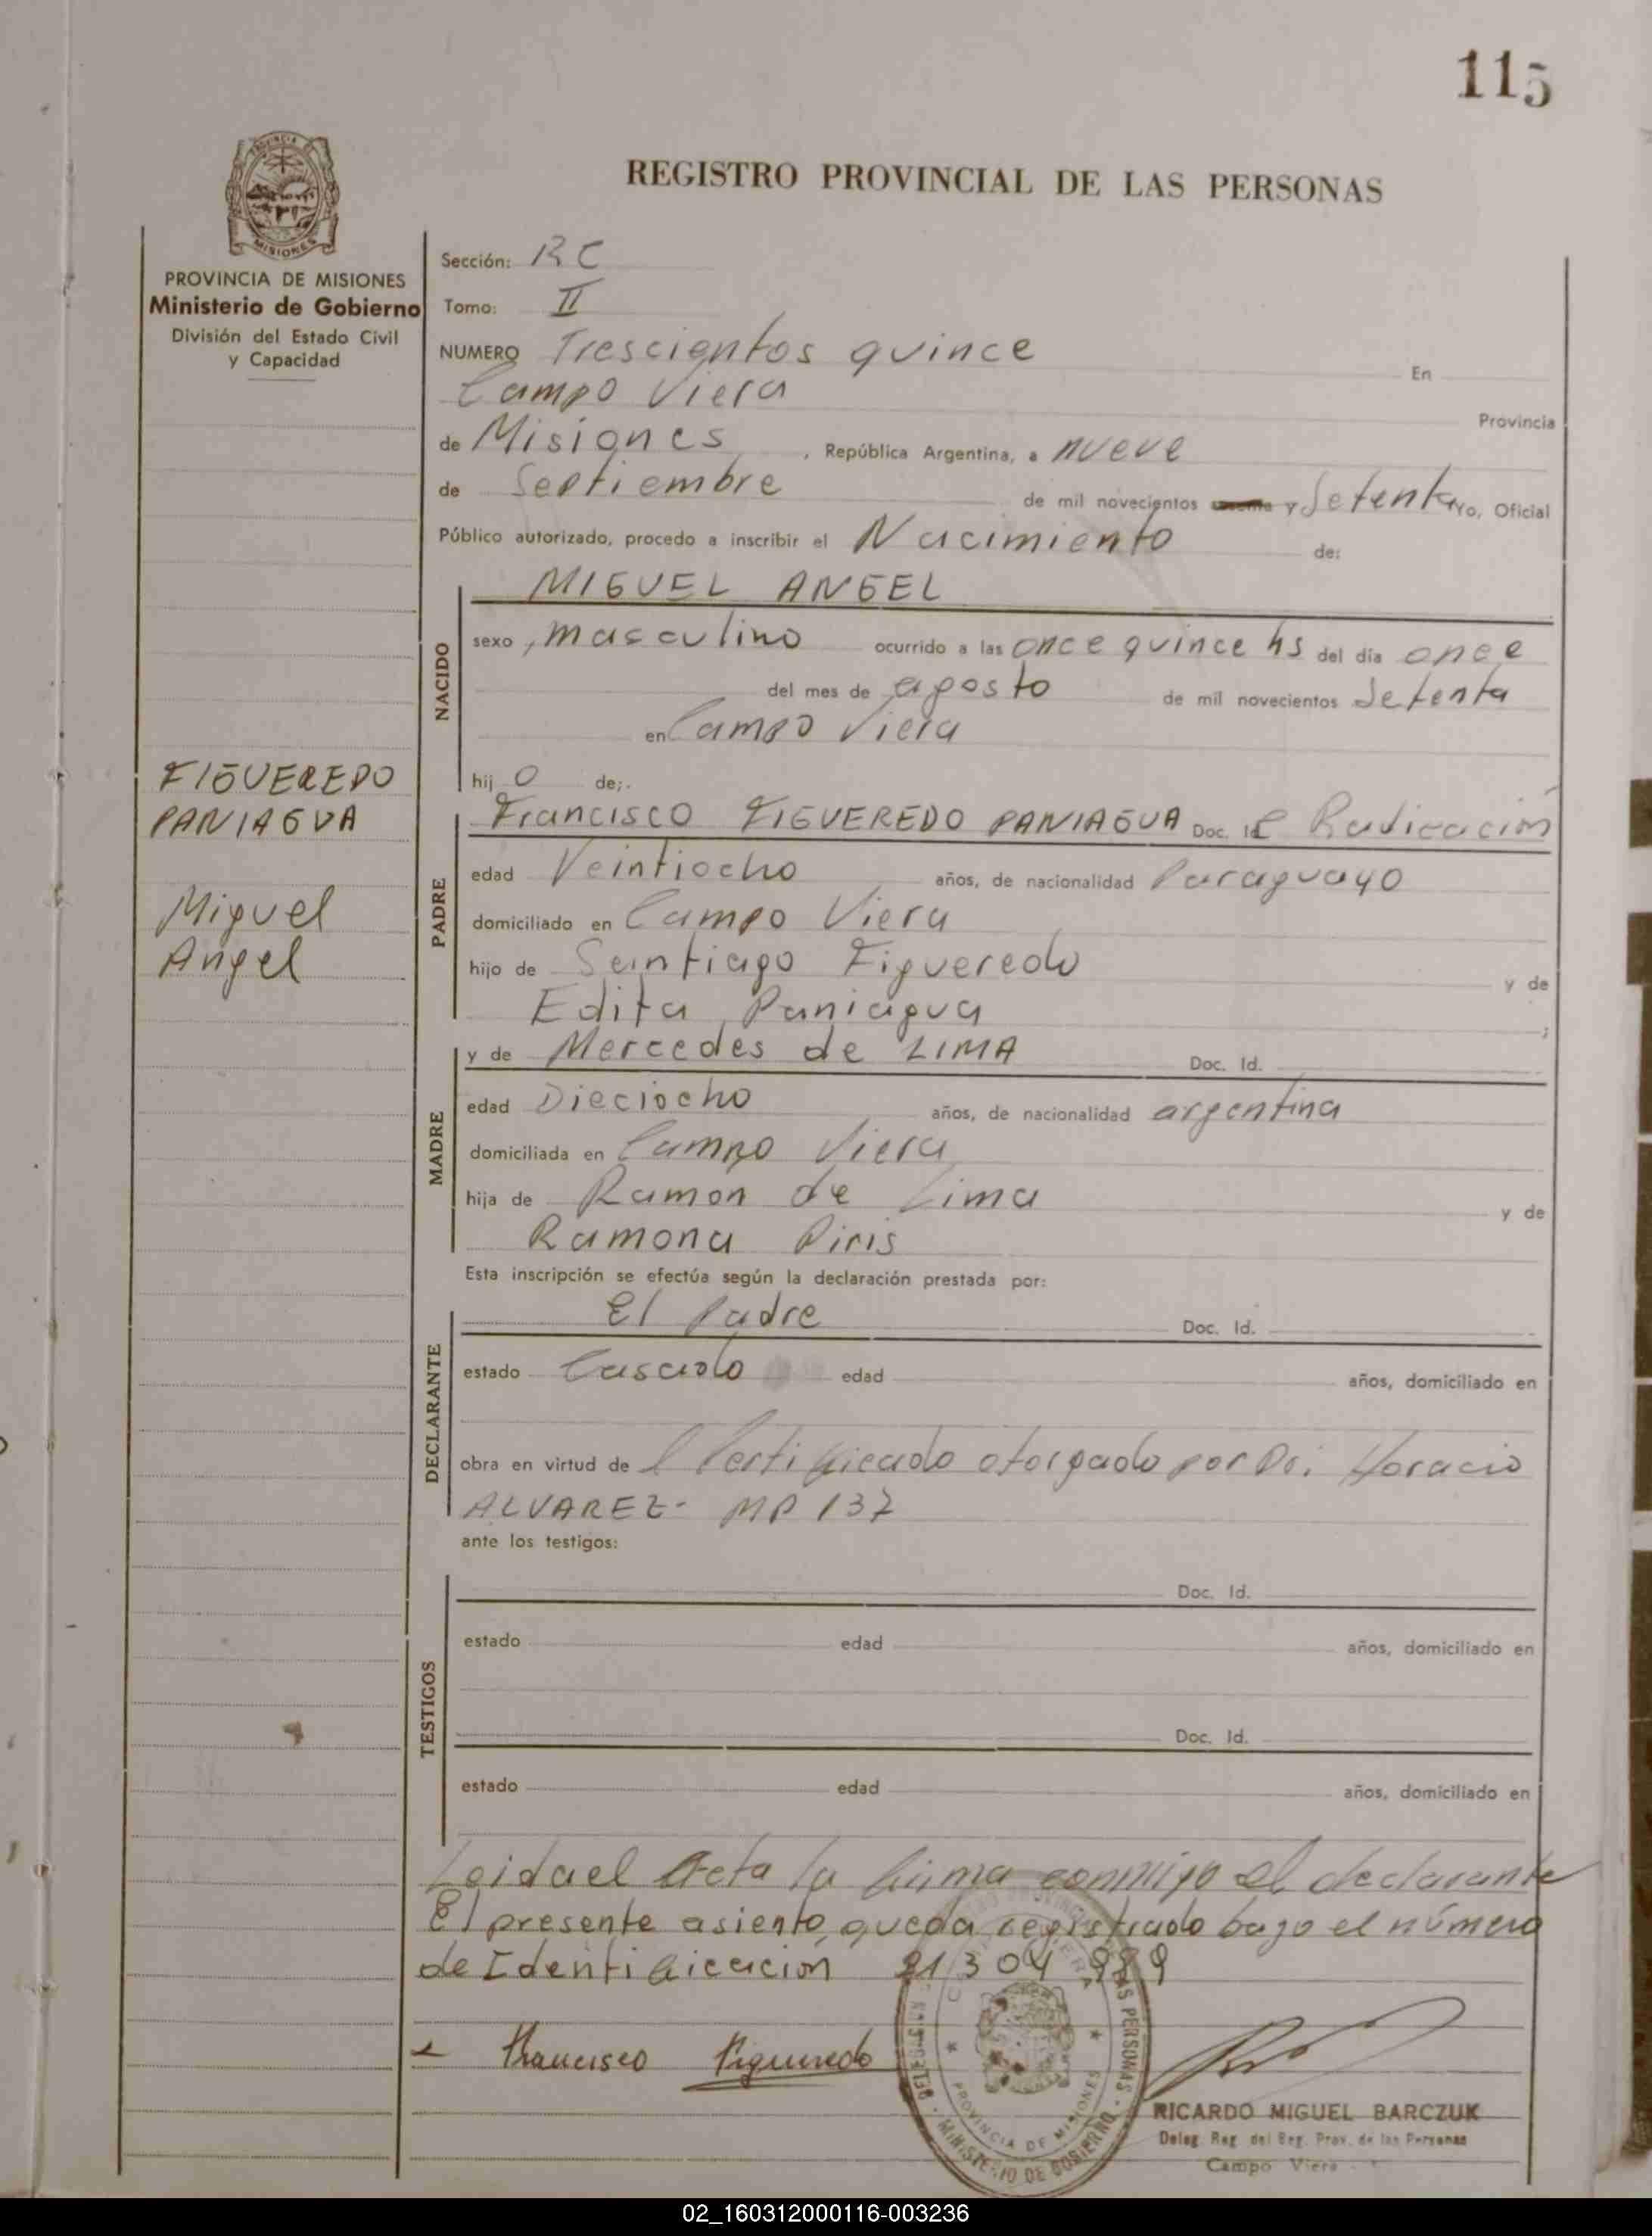 115
REGISTRO PROVINCIAL DE LAS PERSONAS
MISIONES
PROVINCIA DE MISIONES
Ministerio de Gobierno
División del Estado Civil
y Capacidad
Sección: RC
Tomo: II
NUMERO Trescientos quince En
Campo Viera Provincia
de Misiones, República Argentina, a nueve
de Septiembre de mil novecientos y Setenta yo, Oficial
Público autorizado, procedo a inscribir el Nacimiento de:
NACIDO
MIGUEL ANGEL
sexo, masculino ocurrido a las once quince hs del día once
del mes de agosto de mil novecientos Setenta
en Campo Viera
hij o de;.
FIGUEREDO
PANIAGUA
Miguel
Angel
PADRE
Francisco FIGUEREDO PANIAGUA Doc. Id. Radicación
edad Veintiocho años, de nacionalidad Paraguayo
domiciliado en Campo Viera
hijo de Santiago Figueredo y de
Edita Paniagua ;
MADRE
y de Mercedes de LIMA Doc. Id.
edad Dieciocho años, de nacionalidad argentina
domiciliada en Campo Viera
hija de Ramon de Lima y de
Ramona Piris
Esta inscripción se efectúa según la declaración prestada por:
DECLARANTE
El Padre Doc. Id.
estado Casado edad años, domiciliado en
obra en virtud de l Certificado otorgado por Dr. Horacio
ALVAREZ- MP 137
ante los testigos:
TESTIGOS
Doc. Id.
estado edad años, domiciliado en
Doc. Id.
estado edad años, domiciliado en
Leida el Acta la firma conmigo el declarante
El presente asiento queda registrado bajo el número
de Identificación 21 304 989
Francisco Figueredo
PROVINCIA DE MISIONES
MINISTERIO DE GOBIERNO
LAS PERSONAS
RICARDO MIGUEL BARCZUK
Deleg. Reg. del Reg. Prov. de las Personas
Campo Viera
02_160312000116-003236